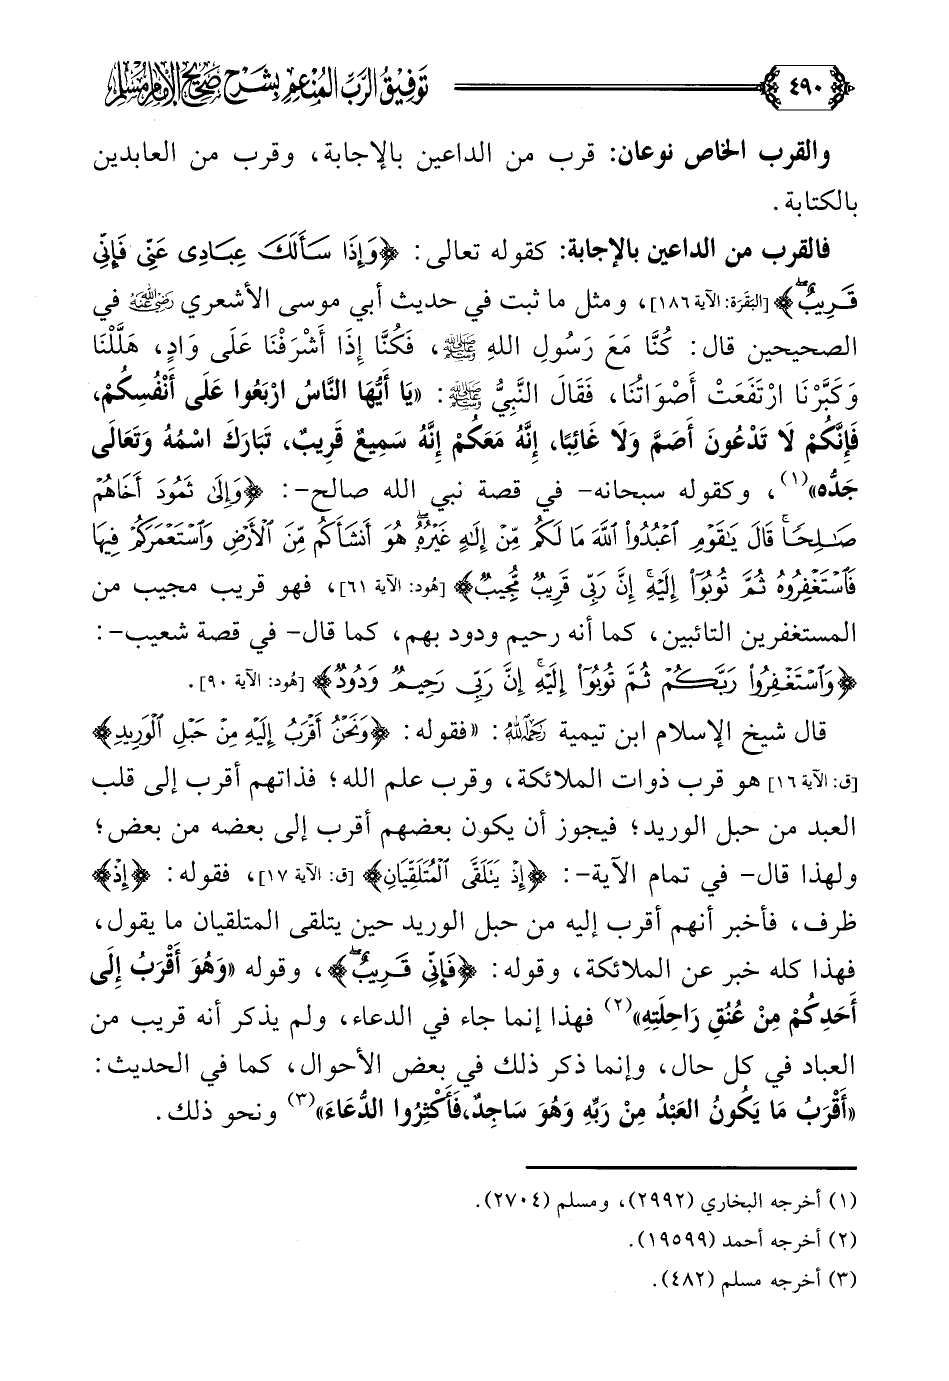 ٤٩٠ توفيق الرب المنعم بشرح صحيح الإمام مسلم
والقرب الخاص نوعان: قرب من الداعين بالإجابة، وقرب من العابدين
بالكتابة.
فالقرب من الداعين بالإجابة: كقوله تعالى: ﴿وَإِذَا سَأَلَكَ عِبَادِى عَنِّى فَإِنِّى
قَرِيبٌۖ﴾ [البَقَرَة: الآية ١٨٦]، ومثل ما ثبت في حديث أبي موسى الأشعري رضي الله عنه في
الصحيحين قال: كُنَّا مَعَ رَسُولِ اللهِ ﷺ، فَكُنَّا إِذَا أَشْرَفْنَا عَلَى وَادٍ، هَلَّلْنَا
وَكَبَّرْنَا ارْتَفَعَتْ أَصْوَاتُنَا، فَقَالَ النَّبِيُّ ﷺ: «يَا أَيُّهَا النَّاسُ ارْبَعُوا عَلَى أَنْفُسِكُمْ،
فَإِنَّكُمْ لَا تَدْعُونَ أَصَمَّ وَلَا غَائِبًا، إِنَّهُ مَعَكُمْ إِنَّهُ سَمِيعٌ قَرِيبٌ، تَبَارَكَ اسْمُهُ وَتَعَالَى
جَدُّه»(١)، وكقوله سبحانه- في قصة نبي الله صالح-: ﴿وَإِلَىٰ ثَمُودَ أَخَاهُمْ
صَٰلِحًاۚ قَالَ يَٰقَوْمِ ٱعْبُدُوا۟ ٱللَّهَ مَا لَكُم مِّنْ إِلَٰهٍ غَيْرُهُۥۖ هُوَ أَنشَأَكُم مِّنَ ٱلْأَرْضِ وَٱسْتَعْمَرَكُمْ فِيهَا
فَٱسْتَغْفِرُوهُ ثُمَّ تُوبُوٓا۟ إِلَيْهِۚ إِنَّ رَبِّى قَرِيبٌ مُّجِيبٌ﴾ [هُود: الآية ٦١]، فهو قريب مجيب من
المستغفرين التائبين، كما أنه رحيم ودود بهم، كما قال- في قصة شعيب-:
﴿وَٱسْتَغْفِرُوا۟ رَبَّكُمْ ثُمَّ تُوبُوٓا۟ إِلَيْهِۚ إِنَّ رَبِّى رَحِيمٌ وَدُودٌ﴾ [هُود: الآية ٩٠].
قال شيخ الإسلام ابن تيمية رحمه الله: «فقوله: ﴿وَنَحْنُ أَقْرَبُ إِلَيْهِ مِنْ حَبْلِ ٱلْوَرِيدِ﴾
[ق: الآية ١٦] هو قرب ذوات الملائكة، وقرب علم الله؛ فذاتهم أقرب إلى قلب
العبد من حبل الوريد؛ فيجوز أن يكون بعضهم أقرب إلى بعضه من بعض؛
ولهذا قال- في تمام الآية-: ﴿إِذْ يَتَلَقَّى ٱلْمُتَلَقِّيَانِ﴾ [ق: الآية ١٧]، فقوله: ﴿إِذْ﴾
ظرف، فأخبر أنهم أقرب إليه من حبل الوريد حين يتلقى المتلقيان ما يقول،
فهذا كله خبر عن الملائكة، وقوله: ﴿فَإِنِّى قَرِيبٌۖ﴾، وقوله «وَهُوَ أَقْرَبُ إِلَى
أَحَدِكُمْ مِنْ عُنُقِ رَاحِلَتِهِ»(٢) فهذا إنما جاء في الدعاء، ولم يذكر أنه قريب من
العباد في كل حال، وإنما ذكر ذلك في بعض الأحوال، كما في الحديث:
«أَقْرَبُ مَا يَكُونُ العَبْدُ مِنْ رَبِّهِ وَهُوَ سَاجِدٌ،فَأَكْثِرُوا الدُّعَاءَ»(٣) ونحو ذلك.
(١) أخرجه البخاري (٢٩٩٢)، ومسلم (٢٧٠٤).
(٢) أخرجه أحمد (١٩٥٩٩).
(٣) أخرجه مسلم (٤٨٢).